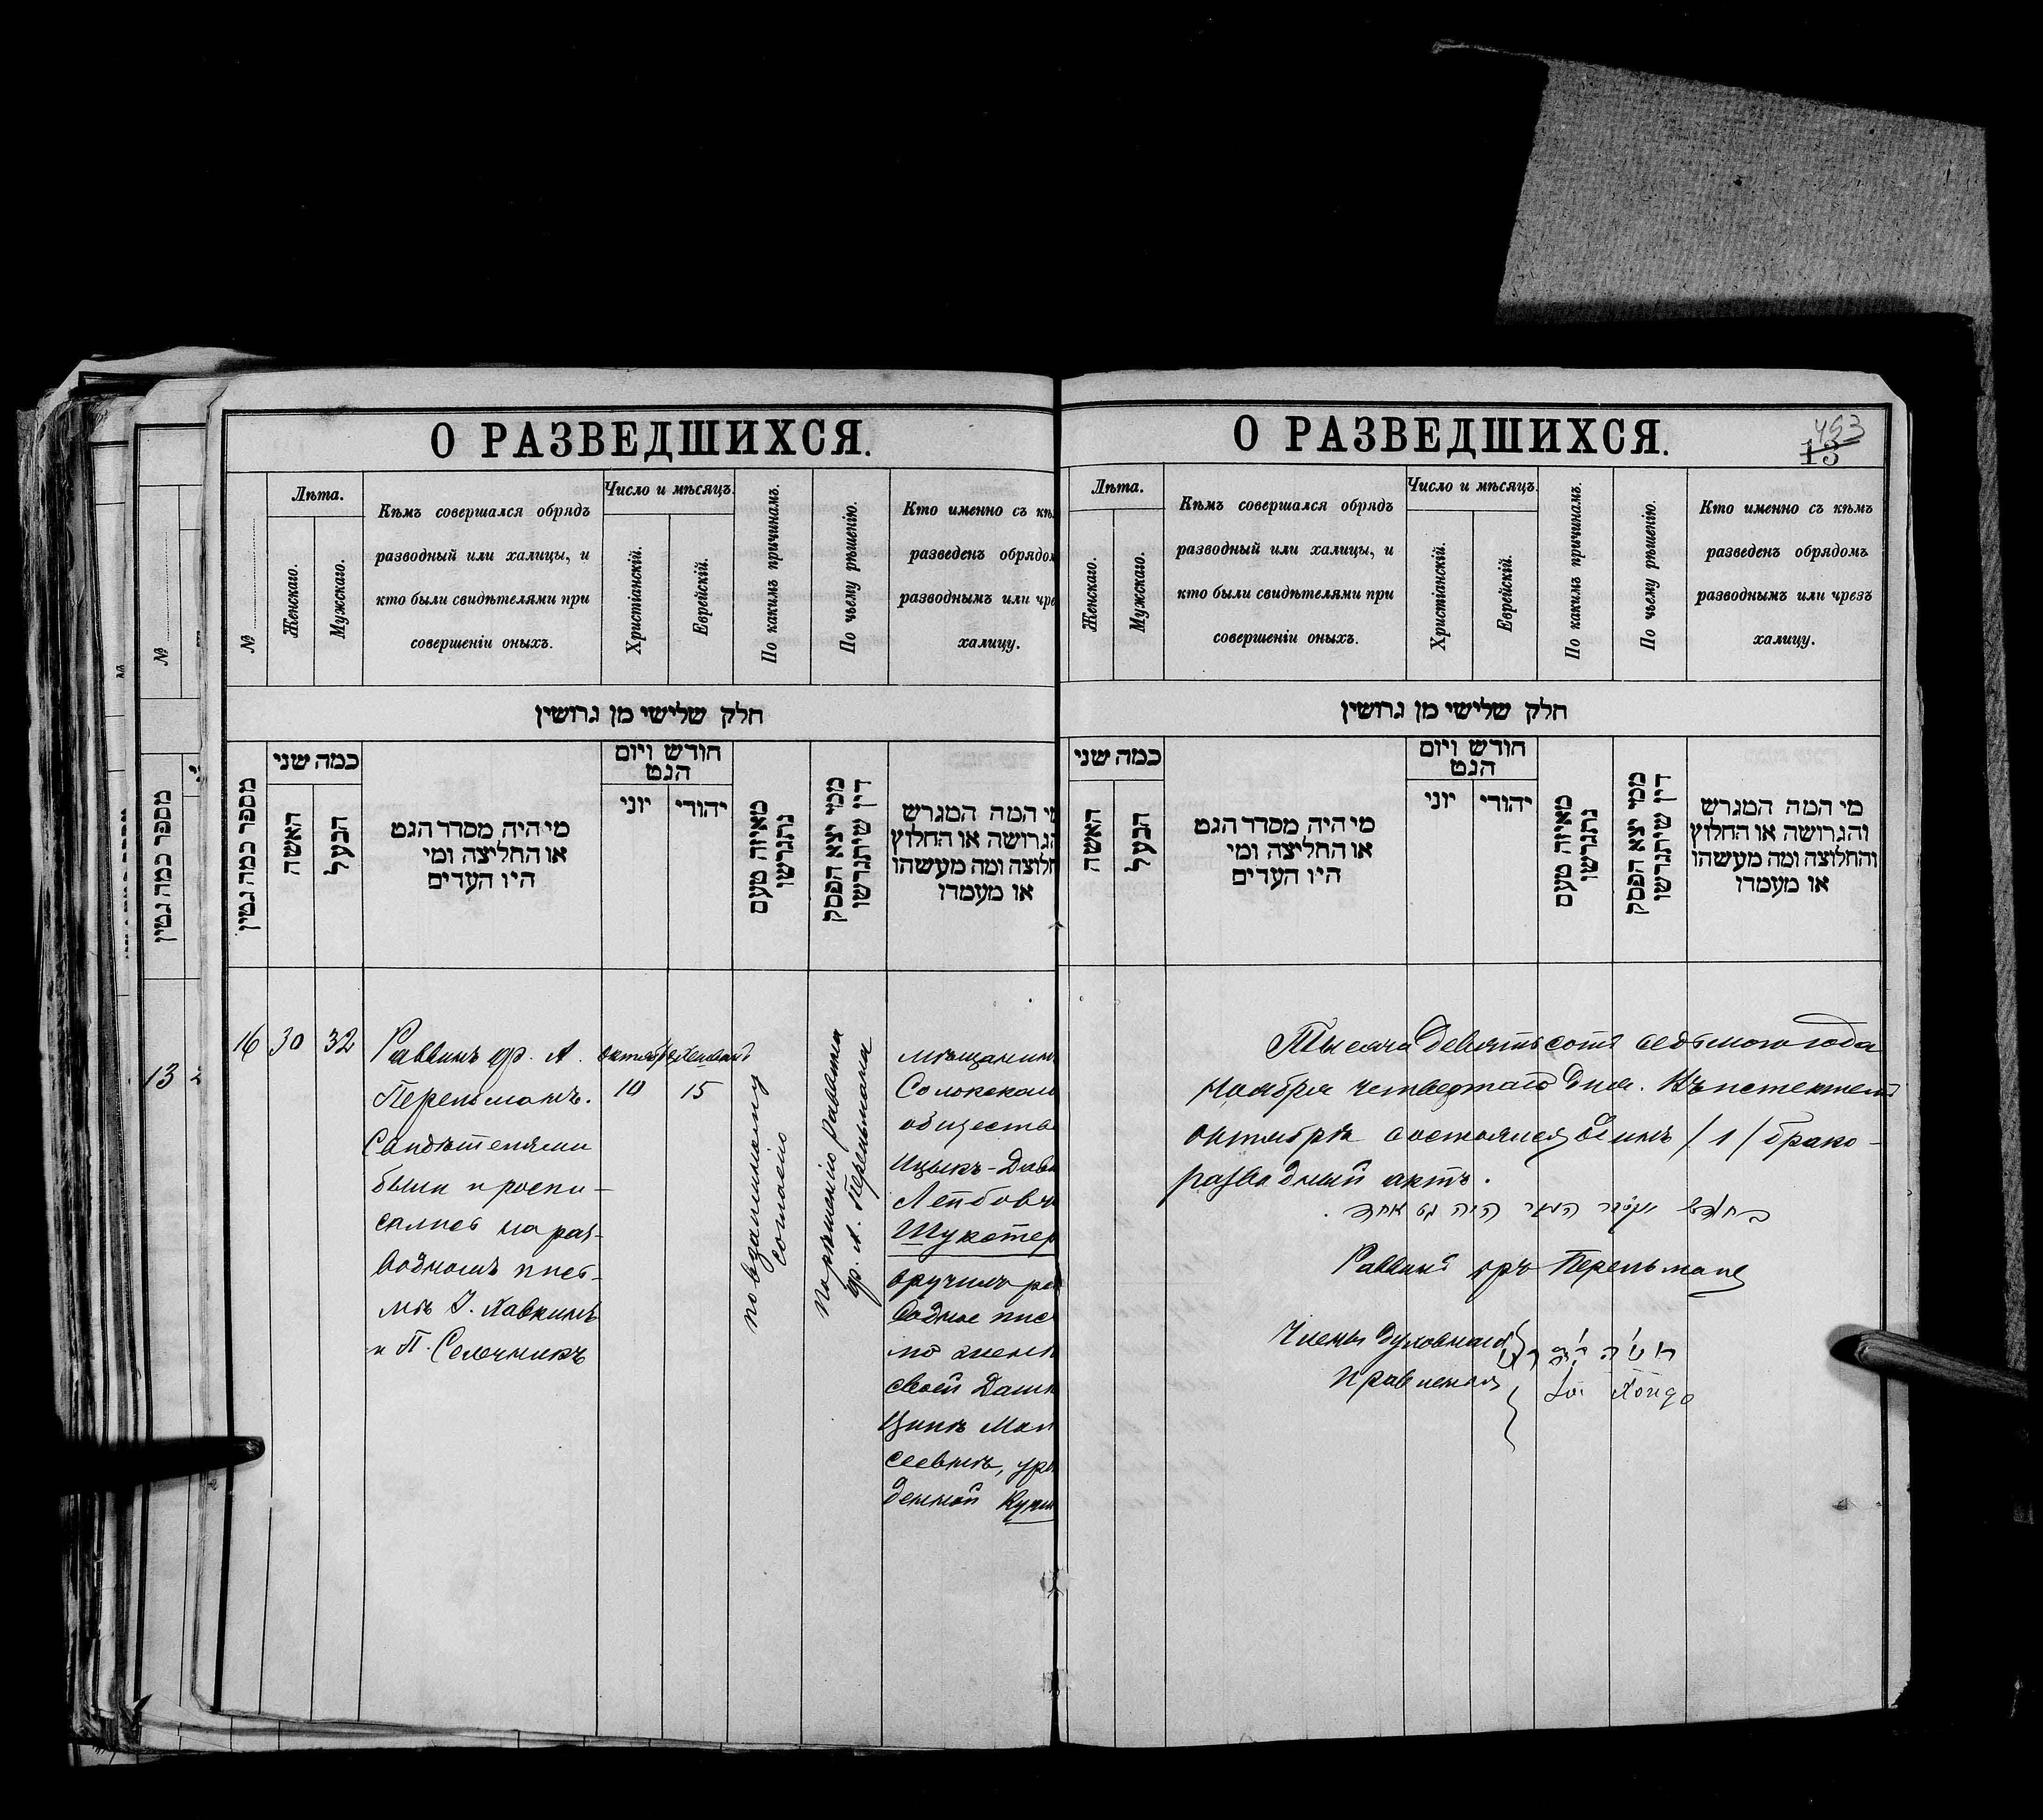 О РАЗВЕДШИХСЯ.
№
Лѣта.
Женскаго.
Мужскаго.
Кѣмъ совершался обрядъ
разводный или халицы, и
кто были свидѣтелями при
совершеніи оныхъ.
Число и мѣсяцъ.
Христіанскій.
Еврейскій.
По какимъ причинамъ.
По чьему рѣшенію.
Кто именно съ кѣ
разведенъ обрядо
разводнымъ или чре
халицу.
חלק שלישי מן גרושין
מספר כמה גטין
כמה שני
האשה
הבעל
מי היה מסדר הגט
או החליצה ומי
היו העדים
חודש ויום
הגט
יוני
יהודי
מאיזה טעם
נתגרשו
ממי יצא הפסק
דין שיתגרשו
מי המה המגרש
הגרושה או החלוץ
חלוצה ומה מעשהו
או מעמדו
№
מספר כמה גטין
13
16
30
32
Раввинъ др. А.
Перельманъ.
Свидѣтелями
были и роспи-
сались на раз-
водномъ пись-
мѣ И. Хавкинъ
и П. Сольчникъ
октября
10
15
по взаимному
согласію
По рѣшенію раввина
др. А. Перельмана
мѣщанин
Солокскаго
общества
Ицыкъ-Дави
Лейбович
Шукстер
вручилъ раз
водное пис
мо женѣ
своей Дашѣ
Ципѣ Мои
сеевнѣ, уро
денной Куп
О РАЗВЕДШИХСЯ.
453
13
Лѣта.
Женскаго.
Мужскаго.
Кѣмъ совершался обрядъ
разводный или халицы, и
кто были свидѣтелями при
совершеніи оныхъ.
Число и мѣсяцъ.
Христіанскій.
Еврейскій.
По какимъ причинамъ.
По чьему рѣшенію.
Кто именно съ кѣмъ
разведенъ обрядомъ
разводнымъ или чрезъ
халицу.
חלק שלישי מן גרושין
כמה שני
האשה
הבעל
מי היה מסדר הגט
או החליצה ומי
היו העדים
חודש ויום
הגט
יוני
יהודי
מאיזה טעם
נתגרשו
ממי יצא הפסק
דין שיתגרשו
מי המה המגרש
והגרושה או החלוץ
והחלוצה ומה מעשהו
או מעמדו
Тысяча девятьсотъ седьмого года
Ноября четвертаго дня. Въ истекшемъ
октябрѣ состоялся одинъ /1/ брако-
разводный актъ.
היה גט אחד.
Раввинъ дръ Перельманъ
Члены духовнаго
правленія